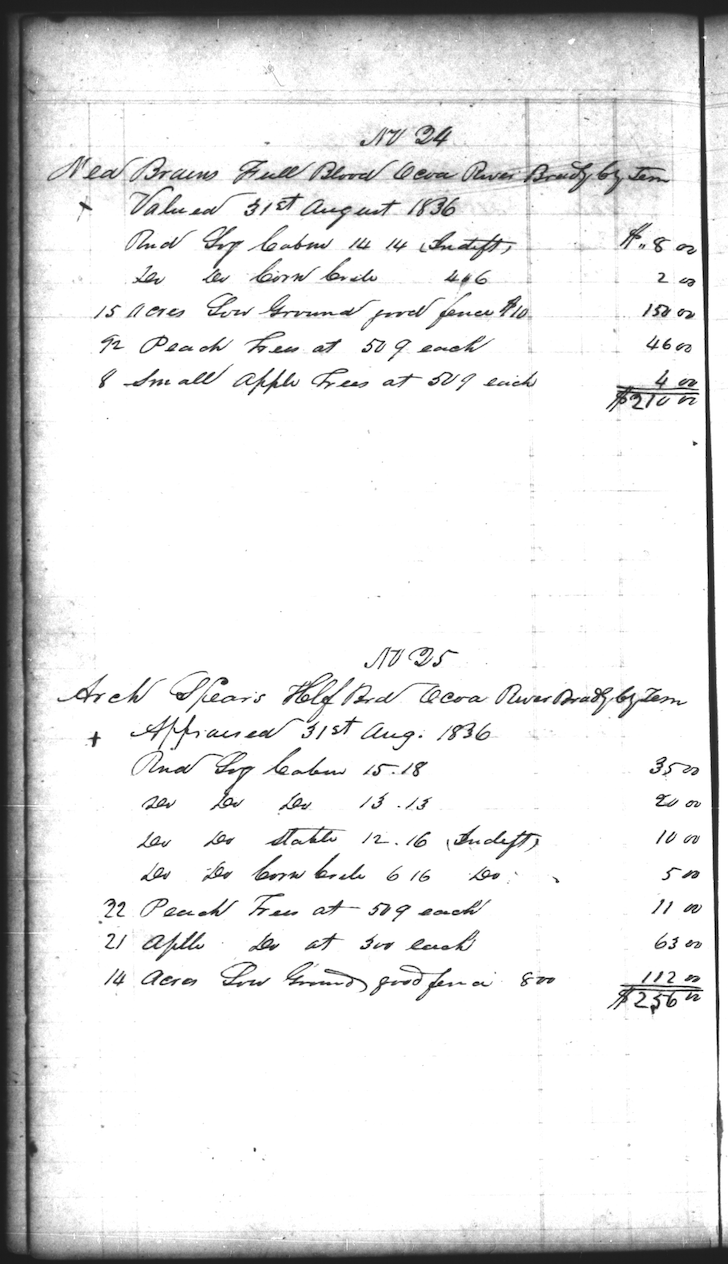 No 24
Ned Brains Full Blood Ocoa River Bradly Cty Tem
+ Valued 31st August 1836
Rnd Log Cabin 14 14 (Indift) $ 8 00
Do Do Corn Crib 4.6 2 00
15 Acres Low Ground good fence $10 150 00
92 Peach Trees at 50 ¢ each 46 00
8 Small Apple Trees at 50 ¢ each 4 00
$210 00
No 25
Arch Spears Half Brd Ocoa River Bradly Cty Tem
+ Appraised 31st Aug. 1836
Rnd Log Cabin 15.18 35 00
Do Do Do 13.13 20 00
Do Do Stable 12.16 (Indift) 10 00
Do Do Corn Crib 6 16 Do 5 00
22 Peach Trees at 50 ¢ each 11 00
21 Aple Do at 300 each 63 00
14 Acres Low Ground good fence 800 112 00
$256 00